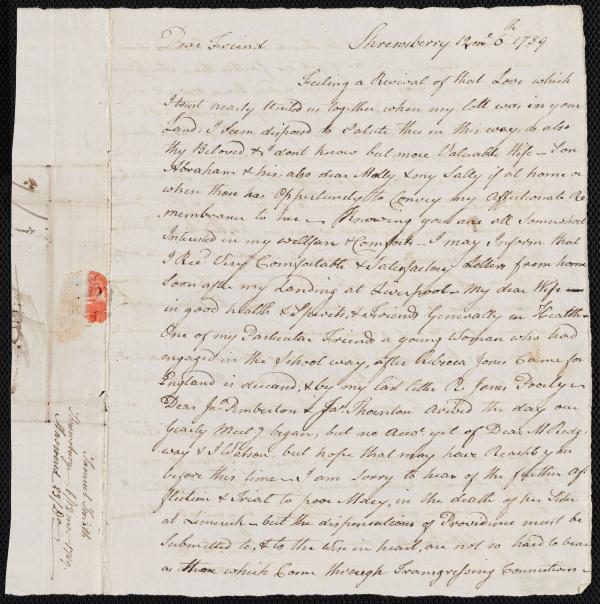 Dear Friend Shrewsberry 12mo 6th 1789
Feeling a Revival of that Love which
I trust nearly United us together, when my lott was in your
Land, I feem disposed to Salute thee in this way, as also
thy Beloved, & I dont know but more Valuable Wife - Son
Abraham & his, also dear Molly, & my Sally if at home or
when thou has Oppertunity to Convey my Affectionate Re
membrance to her - Knowing you are all Somwhat
Intersted in my wellfare & Comforts - I may Inform that
I Recd. Very Comfortable & Satisfactory Letters from home
Soon after my Landing at Liverpool - My dear Wife
in good health & Spirits, & Friends Generally in Health -
One of my Particular Friends a young Woman who had
engaged in the School way, after Rebecca Jones Came for
England is deceased, & by my last letter R. Jones Poorly -
Dear Jno. Pemberton & Jas. Thornton arived the day our
Yearly Meetg. began, but no Acot. yet of Dear M Ridg-
way & J Watson, but hope that may have Reacht you
before this time - I am Sorry to hear of the further Af
fliction & Trial to poor Mary, in the death of her Sister
at Limerick - but the dispensations of Providence must be
Submitted to, & to the Wise in heart, are not so hard to bear
as those which Come through Transgressing Connections -
Samuel Smith
Shrewsbury 6/12mo. 1789